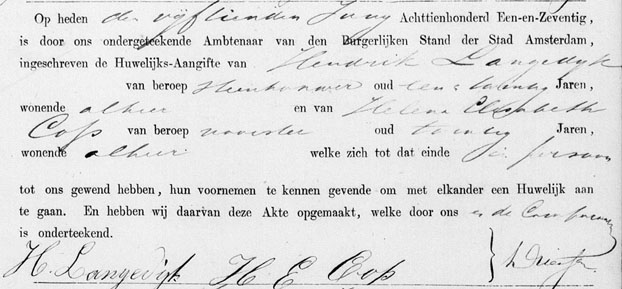 Op heden den vyftienden Juny Achttienhonderd Een-en-Zeventig,
is door ons ondergeteekende Ambtenaar van den Burgerlijken Stand der Stad Amsterdam,
ingeschreven de Huwelijks-Aangifte van Hendrik Langedyk
van beroep Steenhouwer oud een & twintig Jaren,
wonende alhier en van Helena Elisabeth
Cops van beroep oud twintig Jaren,
wonende alhier welke zich tot dat einde in persoon
tot ons gewend hebben, hun voornemen te kennen gevende om met elkander een Huwelijk aan
te gaan. En hebben wij daarvan deze Akte opgemaakt, welke door ons en de Comparanten
is onderteekend.
H. Langedyk H E Cops